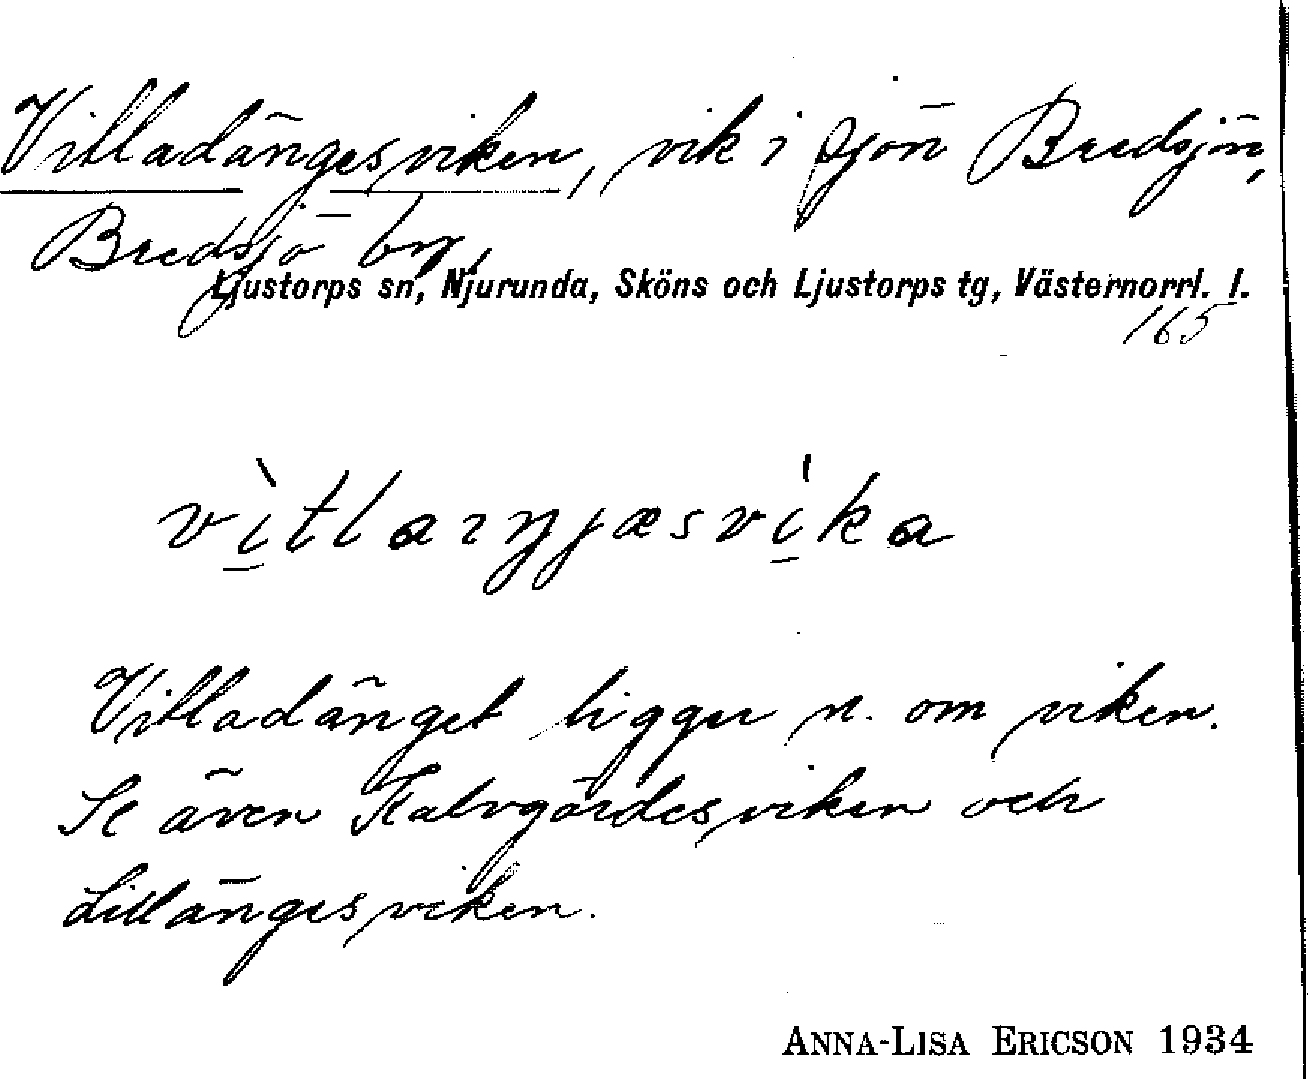 Vitladängesviken, vik i sjön Bredsjön,
Bredsjö by,
Ljustorps sn, Njurunda, Sköns och Ljustorps tg, Västernorrl. l.
165
vìtlaɿŋjæsvi̍ka
Vitladänget ligger n. om viken.
Se även Kalvgärdesviken och
Lillängesviken.
ANNA-LISA ERICSON 1934